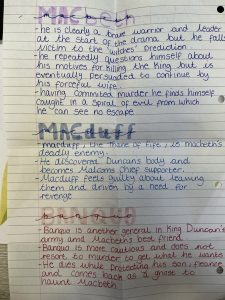 MACbeth
- he is clearly a brave warrior and leader
at the start of the drama but he falls
victim to the witches' prediction.
- he repeatedly questions himself about
his motives for killing the king but is
eventually persuaded to continue by
his forceful wife.
- having commited murder he finds himself
caught in a spiral of evil from which
he can see no escape
MACduff
- macduff, the Thane of Fife, is macbeth's
deadly enemy.
- He discovered Duncans body and
becomes Malcoms chief supporter.
- Macduff feels guilty about leaving
them and driven by a need for
revenge
Banquo
- Banquo is another general in King Duncan's
army and Macbeth's best friend
- Banquo is more cautious and does not
resort to murder to get what he wants
- He dies while protecting his son, Fleance
and comes back as a ghost to
haunt Macbeth